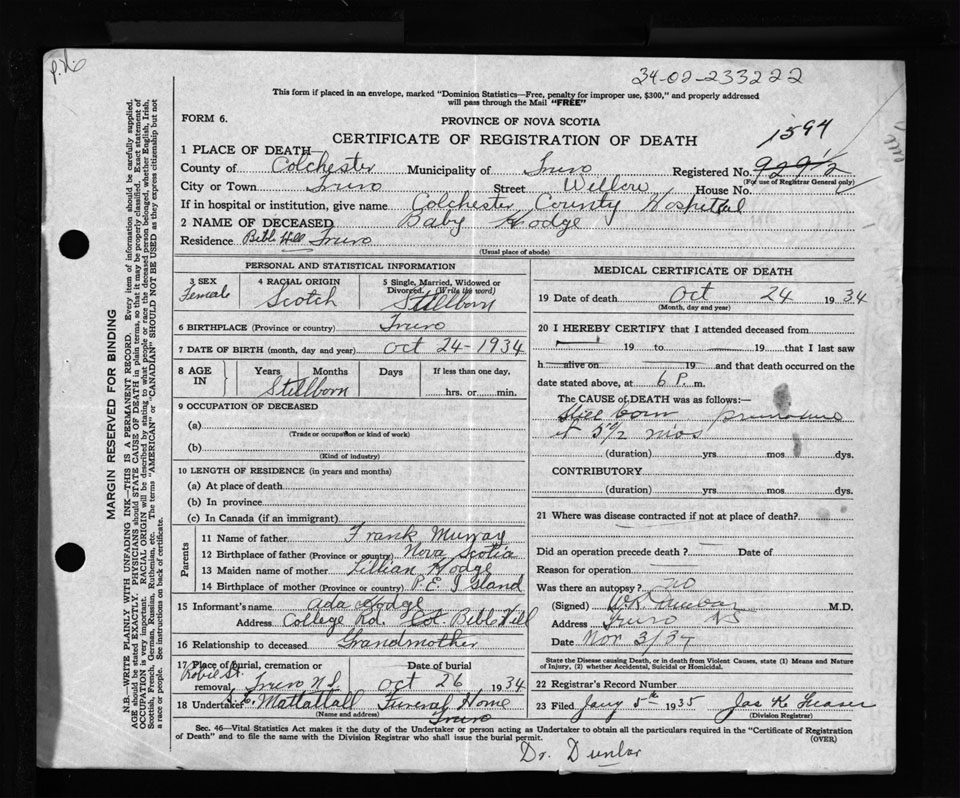 P.N.
34-02-233222
This form if placed in an envelope, marked "Dominion Statistics—Free, penalty for improper use, $300," and properly addressed
will pass through the Mail "FREE"
FORM 6. PROVINCE OF NOVA SCOTIA
CERTIFICATE OF REGISTRATION OF DEATH 1594
1 PLACE OF DEATH—
County of Colchester Municipality of Truro Registered No. 929½
(For use of Registrar General only)
City or Town Truro Street Willow House No.
If in hospital or institution, give name Colchester County Hospital
2 NAME OF DECEASED Baby Hodge
Residence Bible Hill Truro
(Usual place of abode)
PERSONAL AND STATISTICAL INFORMATION
3 SEX Female 4 RACIAL ORIGIN Scotch 5 Single, Married, Widowed or Divorced. (Write the word) Stillborn
6 BIRTHPLACE (Province or country) Truro
7 DATE OF BIRTH (month, day and year) Oct 24-1934
8 AGE IN Years Months Days If less than one day, hrs. or min.
Stillborn
9 OCCUPATION OF DECEASED
(a)
(Trade or occupation or kind of work)
(b)
(Kind of industry)
10 LENGTH OF RESIDENCE (in years and months)
(a) At place of death
(b) In province
(c) In Canada (if an immigrant)
Parents
11 Name of father Frank Murray
12 Birthplace of father (Province or country) Nova Scotia
13 Maiden name of mother Lillian Hodge
14 Birthplace of mother (Province or country) P.E. Island
15 Informant's name Ada Hodge
Address College Rd. Col. Bible Hill
16 Relationship to deceased Grandmother
17 Place of burial, cremation or removal Robie St. Truro N.S. Date of burial Oct 26 1934
18 Undertaker Mattatall Funeral Home
(Name and address) Truro
MEDICAL CERTIFICATE OF DEATH
19 Date of death Oct 24 1934
(Month, day and year)
20 I HEREBY CERTIFY that I attended deceased from
19 to 19 that I last saw
h alive on 19 and that death occurred on the
date stated above, at 6 P. m.
The CAUSE OF DEATH was as follows:—
Still born premature
of 5½ mos
(duration) yrs mos dys.
CONTRIBUTORY
(duration) yrs. mos. dys.
21 Where was disease contracted if not at place of death?
Did an operation precede death? Date of
Reason for operation
Was there an autopsy? No
(Signed) M.D.
Address Truro NS
Date Nov 3/34
State the Disease causing Death, or in death from Violent Causes, state (1) Means and Nature of Injury, (2) whether Accidental, Suicidal or Homicidal.
22 Registrar's Record Number
23 Filed Jany 5th 1935 Jas K Fraser
(Division Registrar)
Sec. 46—Vital Statistics Act makes it the duty of the Undertaker or person acting as Undertaker to obtain all the particulars required in the "Certificate of Registration
of Death" and to file the same with the Division Registrar who shall issue the burial permit. (OVER)
Dr. Dunlop
MARGIN RESERVED FOR BINDING
N.B.—WRITE PLAINLY WITH UNFADING INK—THIS IS A PERMANENT RECORD. Every item of information should be carefully supplied.
AGE should be stated EXACTLY. PHYSICIANS should STATE CAUSE OF DEATH in plain terms, so that it may be properly classified. Exact statement of
OCCUPATION is very important. RACIAL ORIGIN will be described by stating to what people or race the deceased person belonged, whether English, Irish,
Scottish, French, German, Russian, Ruthenian, etc. The terms "AMERICAN" or "CANADIAN" SHOULD NOT BE USED as they express citizenship but not
a race or people. See instructions on back of certificate.